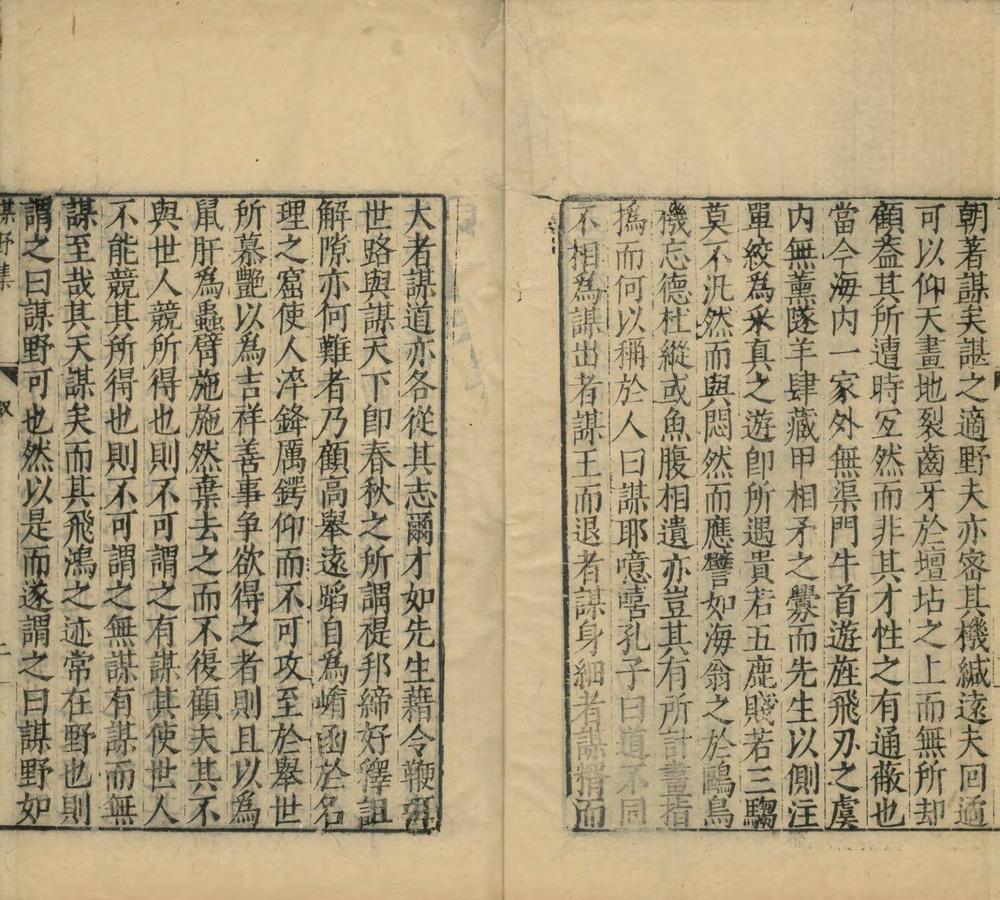 朝著謀矣諶之適野夫亦密其機緘遠夫回遹
可以仰天畫地裂齒牙於壇坫之上而無所却
顧葢其所遭時宐然而非其才性之有通蔽也
當今海内一家外無渠門牛首遊旌飛刃之虞
内無薰隧羊肆藏甲相矛之釁而先生以側注
單絞爲釆真之遊卽所遇貴若五鹿賤若三騶
莫不汎然而與悶然而應譬如海翁之於鷗鳥
機忘德杜縱或魚腹相遺亦豈其有所計畫指
撝而何以稱於人曰謀耶噫嘻孔子曰道不同
不相爲謀出者謀王而退者謀身細者謀稰而
大者謀道亦各從其志爾才如先生藉令鞭弭
世路與謀天下卽春秋之所謂禔邦締好釋詛
解隙亦何難者乃顧高舉遠蹈自爲嵴函於名
理之窟使人淬鋒厲鍔仰而不可攻至於舉世
所慕艷以爲吉祥善事争欲得之者則且以爲
鼠肝爲蟲臂施施然棄去之而不復顧夫其不
與世人競所得也則不可謂之有謀其使世人
不能競其所得也則不可謂之無謀有謀而無
謀至哉其天謀矣而其飛鴻之迹常在野也則
謂之曰謀野可也然以是而遂謂之曰謀野如
謀野集
叙
二